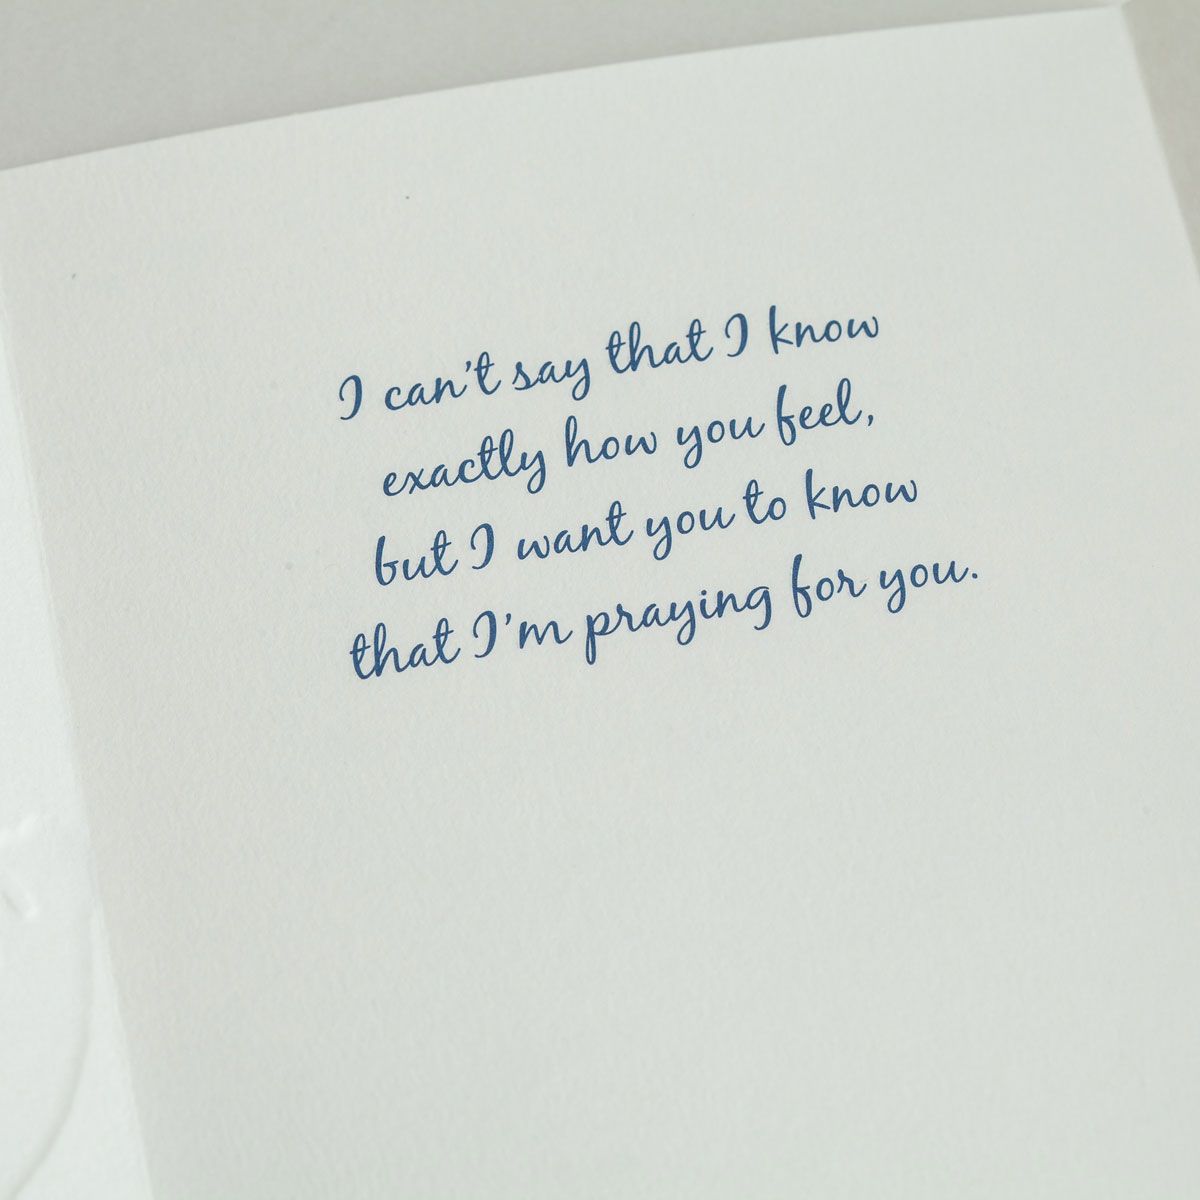 I can't say that I know
exactly how you feel,
but I want you to know
that I'm praying for you.